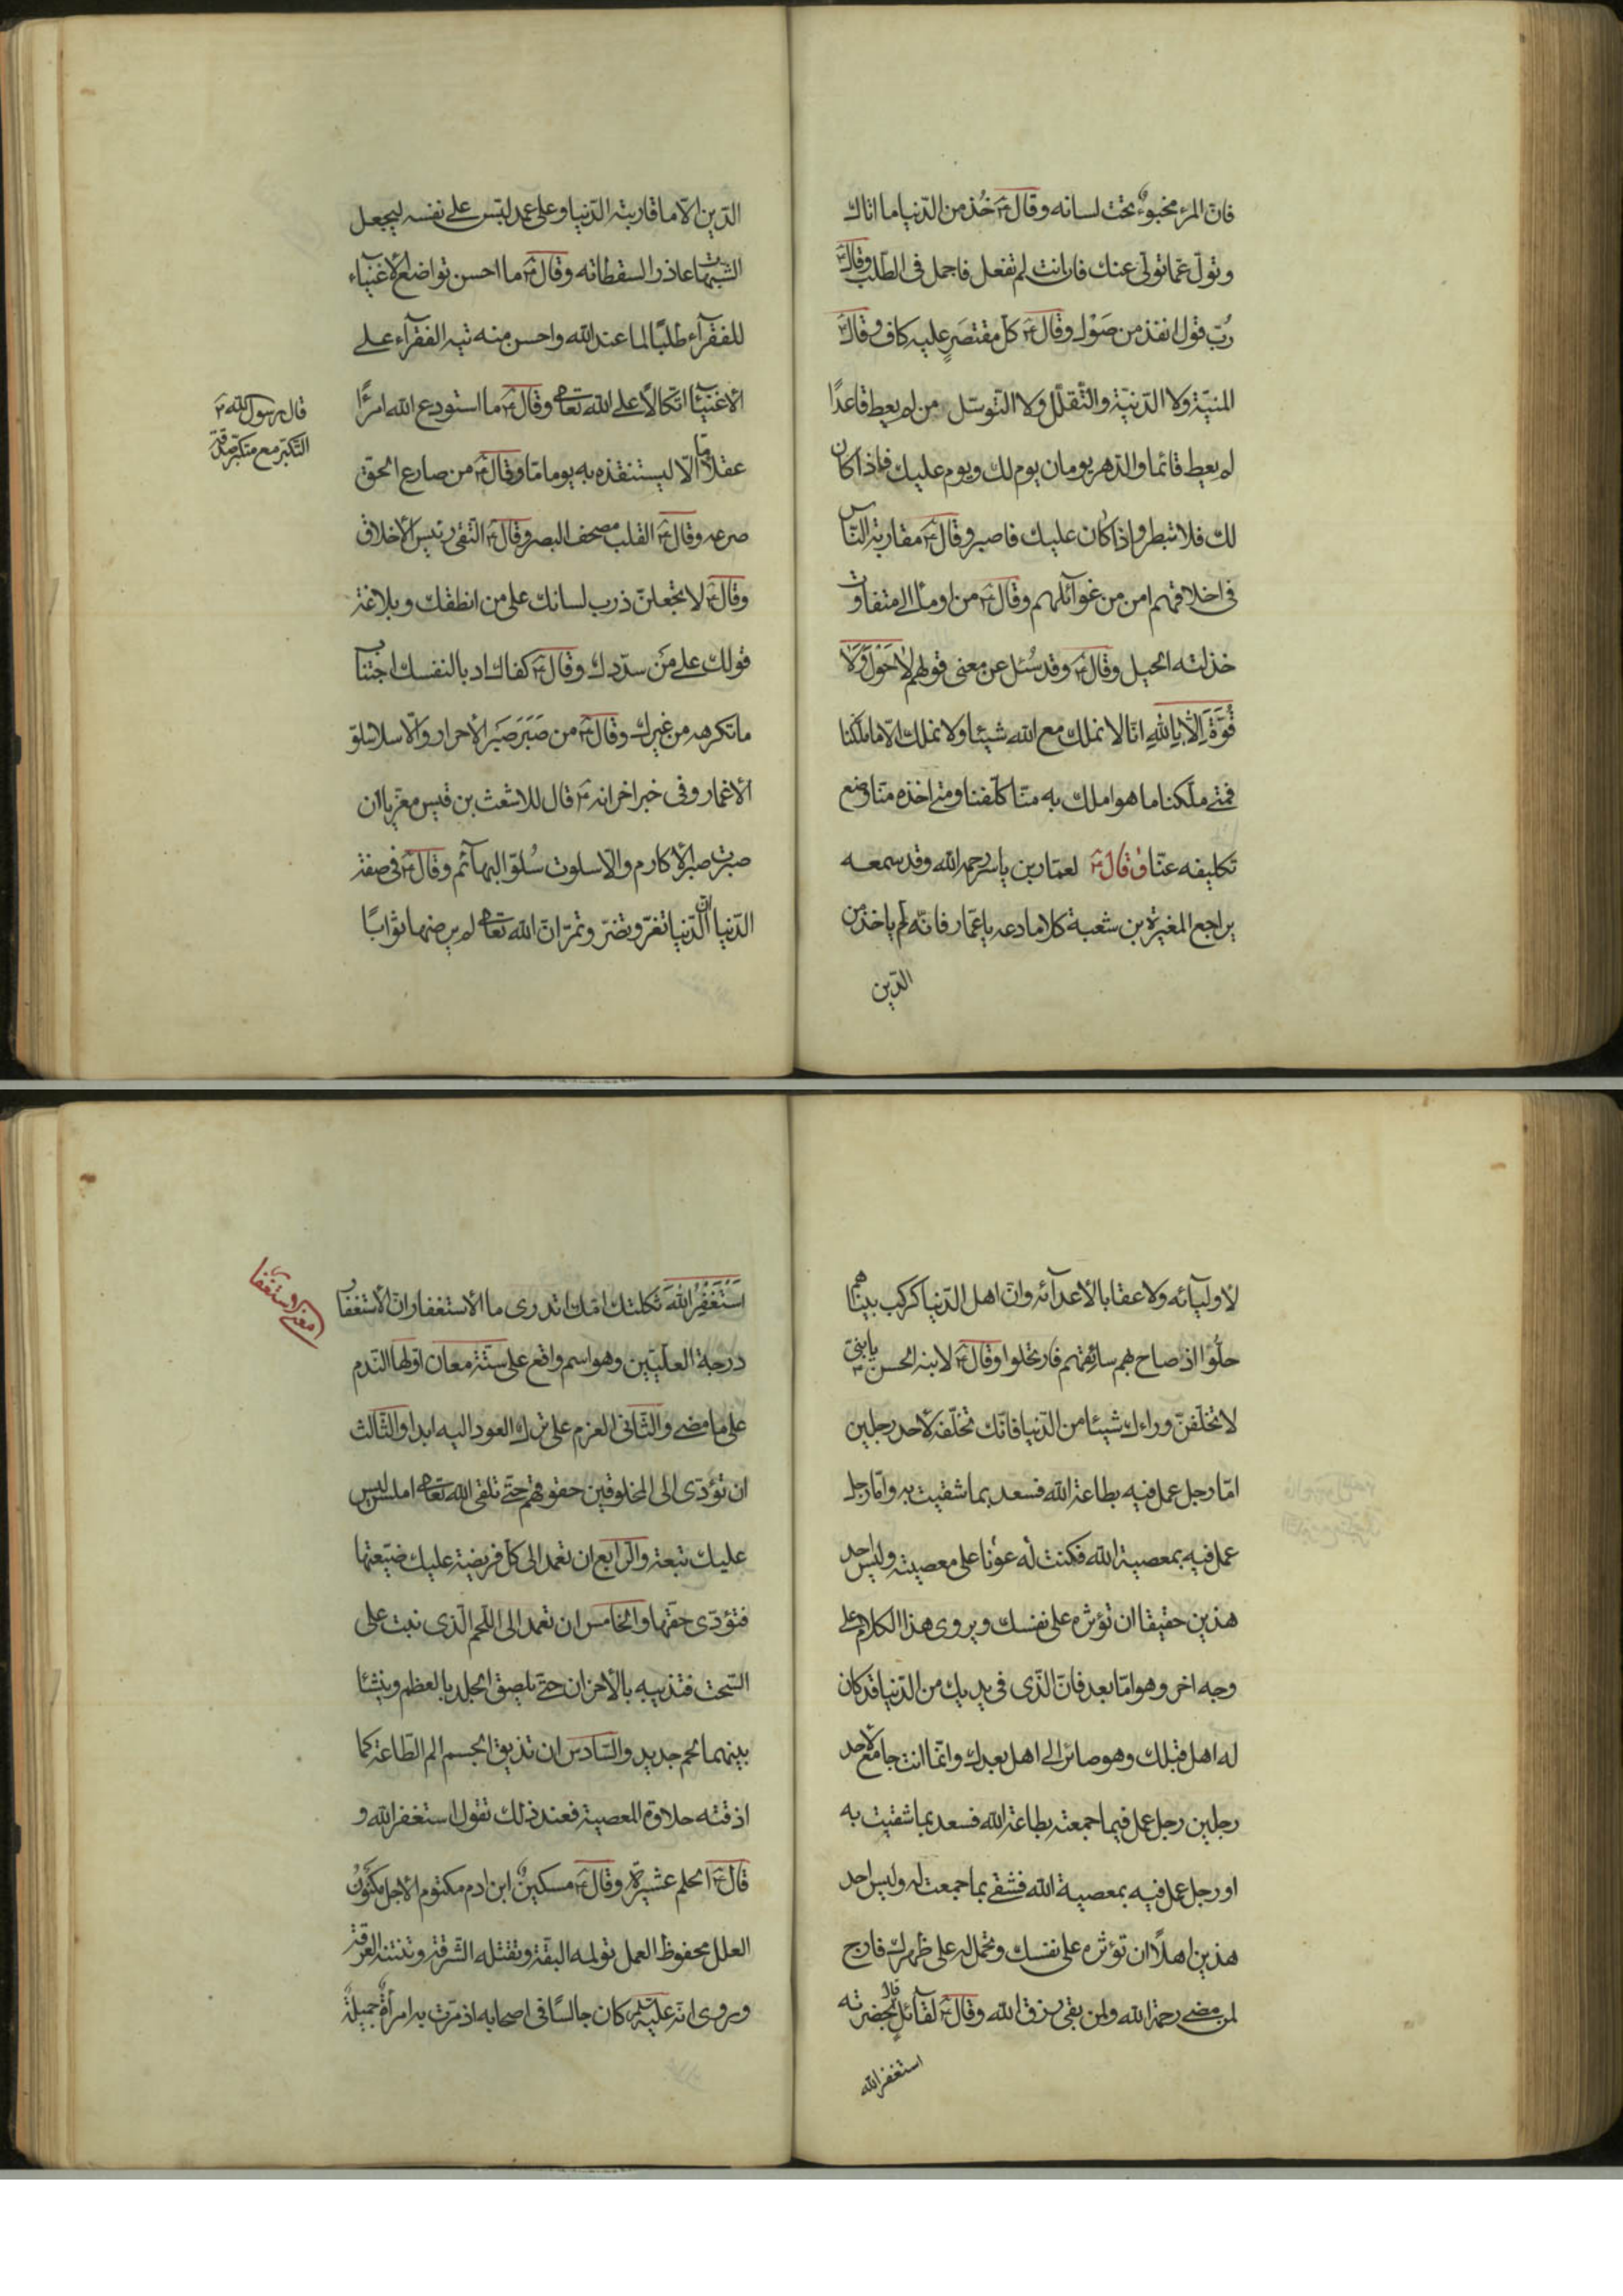 فانّ المرء مخبوءٌ تحت لسانه وقال ع خُذ من الدّنيا ما اتاك
وتولّ عمّا تولّى عنك فان انت لم تفعل فاجمل فى الطّلب وقال ع
رُبّ قول انفذ من صَوْل وقال ع كلّ مقتصَرٍ عليه كاف وقال ع
المنيّة ولا الدّنيّة والتّقلّل ولا التّوسّل من لم يعط قاعدًا
لم يعط قائما والدّهر يومان يوم لك ويوم عليك فاذا كان
لك فلا تبطر واذا كان عليك فاصبر وقال ع مقاربة النّاس
فى اخلاقهم امن من غوآئلهم وقال ع من اومأ الى متفاوت
خذلته الحيل وقال ع وقد سُئل عن معنى قولهم لا حَوْلَ وَلا
قُوَّةَ اِلّا بِاللهِ انّا لا نملك مع الله شيئا ولا نملك الّا ما ملّكنا
فمتى ملّكنا ما هو املك به منّا كلّفنا ومتى اخذه منّا وضع
تكليفه عنّا وقال ع لعمّار بن ياسر رحمه الله وقد سمعه
يراجع المغيرة بن شعبة كلاما دعه يا عمّار فانّه لم ياخذ من
الدّين
الدّين الّا ما قاربته الدّنيا وعلى عمد لبّس على نفسه ليجعل
الشّبهات عاذرا لسقطاته وقال ع ما احسن تواضع الأغنيآء
للفقرآء طلبًا لما عند الله واحسن منه تيه الفقرآء على
الأغنيآء اتّكالًا على الله تعالى وقال ع ما استودع الله امرءًا
عقلًا ما الّا ليستنقذه به يوما مّا وقال ع من صارع الحق
صرعه وقال ع القلب مصحف البصر وقال ع التّقى رئيس الأخلاق
وقال ع لا تجعلنّ ذرب لسانك على من انطقك وبلاغة
قولك على مَن سدّدك وقال ع كفاك ادبا لنفسك اجتناب
ما تكرهه من غيرك وقال ع من صَبَرَ صَبَر الأحرار والّا سلا سلوّ
الأغمار وفى خبر اخر انه ع قال للاشعث بن قيس معزّيا ان
صبرت صبر الأكارم والّا سلوت سُلوّ البهآئم وقال ع فى صفة
الدّنيا انّ الدّنيا تغرّ وتضرّ وتمرّ انّ الله تعالى لم يرضها ثوابًا
قال رسول الله ص
التّكبّر مع متكبّر صدقة
لأوليآئه ولا عقابا لأعدآئه وانّ اهل الدّنيا كركب بينا هم
حلّوا اذ صاح بهم سائقهم فارتحلوا وقال ع لابنه الحسن ع يا بنىّ
لا تخلّفنّ وراءك شيئا من الدّنيا فانّك تخلّفه لأحد رجلين
امّا رجل عمل فيه بطاعة الله فسعد بما شقيت به وامّا رجل
عمل فيه بمعصية الله فكنت له عونا على معصيته وليس احد
هذين حقيقا ان تؤثره على نفسك ويروى هذا الكلام على
وجه اخر وهو امّا بعد فانّ الّذى فى يديك من الدّنيا قد كان
له اهل قبلك وهو صائر الى اهل بعدك وانّما انت جامع لأحد
رجلين رجل عمل فيما جمعته بطاعة الله فسعد بما شقيت به
او رجل عمل فيه بمعصية الله فشقى بما جمعت له وليس احد
هذين اهلًا ان تؤثره على نفسك وتحمل له على ظهرك فارج
لمن مضى رحمة الله ولمن بقى رزق الله وقال ع لقآئلٍ قال بحضرته
استغفر الله
اَسْتَغْفِرُ اللهَ ثكلتك امّك اتدرى ما الاستغفار انّ الأستغفار
درجة العلّيّين وهو اسم واقع على ستّة معان اوّلها النّدم
على ما مضى والثّانى العزم على ترك العود اليه ابدا والثّالث
ان تؤدّى الى المخلوقين حقوقهم حتّى تلقى الله تعالى املس ليس
عليك تبعة والرّابع ان تعمد الى كلّ فريضة عليك ضيّعتها
فتؤدّى حقّها والخامس ان تعمد الى اللّحم الّذى نبت على
السّحت فتذيبه بالأحزان حتّى يلصق الجلد بالعظم وينشئا
بينهما لحم جديد والسّادس ان تذيق الجسم الم الطّاعة كما
اذقته حلاوة المعصية فعند ذلك تقول استغفر الله و
قال ع الحلم عشيرة وقال ع مسكينٌ ابن ادم مكتوم الأجل مكنون
العلل محفوظ العمل تولمه البقّة وتقتله الشّرقة وتنتنه العرقة
وروى انّه عليه السلم كان جالسًا فى اصحابه اذ مرّت به امرأةٌ جميلةٌ
معنى استغفار